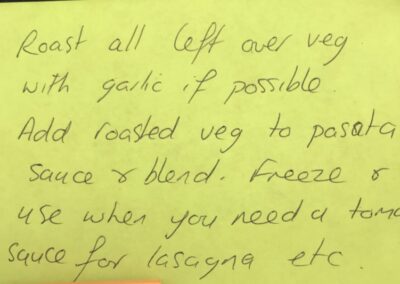 Roast all left over veg
with garlic if possible.
Add roasted veg to pasata
sauce & blend. Freeze &
use when you need a toma
sauce for lasagna etc.